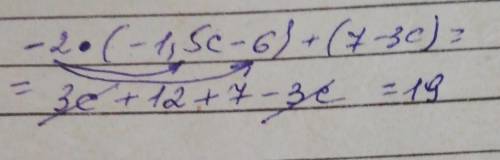 -2•(-1,5c-6)+(7-3c)=
= 3c+12+7-3c =19